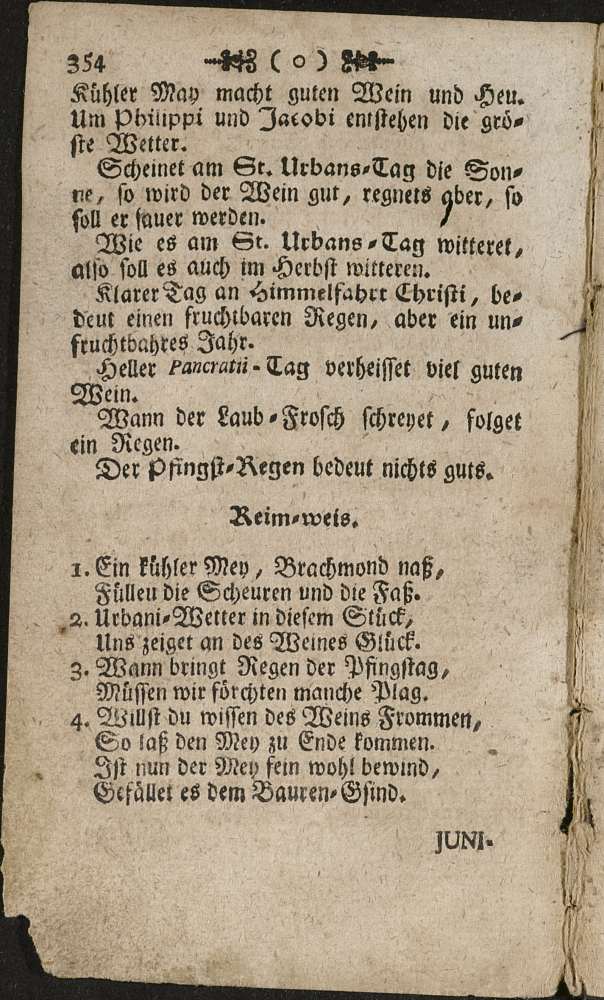 354 ( o )
Kühler May macht guten Wein und Heu.
Um Philippi und Jacobi entstehen die grö-
ste Wetter.
Scheinet am St. Urbans-Tag die Son-
ne, so wird der Wein gut, regnets aber, so
soll er sauer werden.
Wie es am St. Urbans-Tag witteret,
also soll es auch im Herbst witteren.
Klarer Tag an Himmelfahrt Christi, be-
deut einen fruchtbaren Regen, aber ein un-
fruchtbahres Jahr.
Heller Pancratii-Tag verheisset viel guten
Wein.
Wann der Laub-Frosch schreyet, folget
ein Regen.
Der Pfingst-Regen bedeut nichts guts.
Reim-weis.
1. Ein kühler Mey, Brachmond naß,
Füllen die Scheuren und die Faß.
2. Urbani-Wetter in diesem Stück,
Uns zeiget an des Weines Glück.
3. Wann bringt Regen der Pfingstag,
Müssen wir förchten manche Plag.
4. Willst du wissen des Weins Frommen,
So laß den Mey zu Ende kommen.
Ist nun der Mey fein wohl bewind,
Gefället es dem Bauren-Gsind.
JUNI-